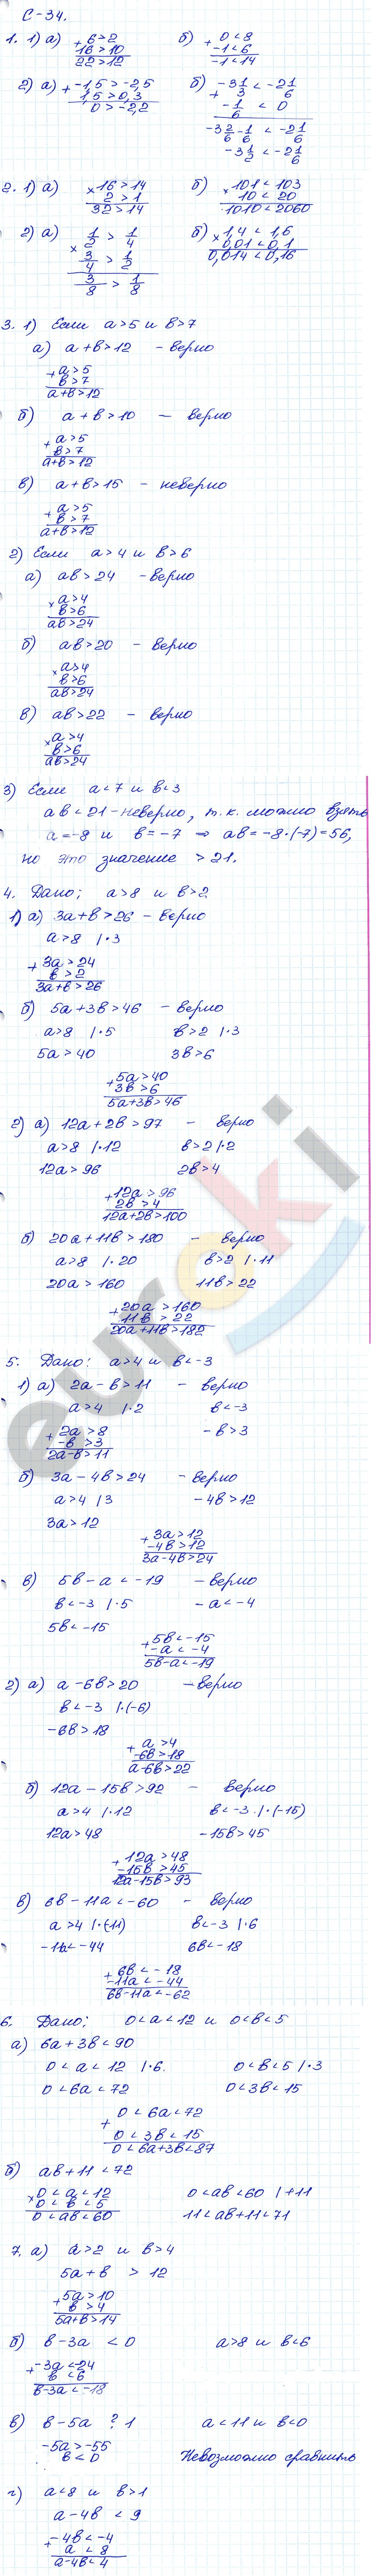 С-34.
1. 1) а) + 6 > 2 б) + 0 < 8
16 > 10 -1 < 6
22 > 12 -1 < 14
2) а) + -1,5 > -2,5 б) + -3 1/3 < -2 1/6
1,5 > 0,3 -1/6 < 0
0 > -2,2 -3 2/6 - 1/6 < -2 1/6
-3 1/2 < -2 1/6
2. 1) а) × 16 > 14 б) × 101 < 103
2 > 1 10 < 20
32 > 14 1010 < 2060
2) а) × 1/2 > 1/4 б) × 1,4 < 1,6
3/4 > 1/2 0,01 < 0,1
3/8 > 1/8 0,014 < 0,16
3. 1) Если a > 5 и b > 7
а) a + b > 12 - верно
+ a > 5
b > 7
a+b > 12
б) a + b > 10 - верно
+ a > 5
b > 7
a+b > 12
в) a + b > 15 - неверно
+ a > 5
b > 7
a+b > 12
2) Если a > 4 и b > 6
а) ab > 24 - верно
× a > 4
b > 6
ab > 24
б) ab > 20 - верно
× a > 4
b > 6
ab > 24
в) ab > 22 - верно
× a > 4
b > 6
ab > 24
3) Если a < 7 и b < 3
ab < 21 - неверно, т.к. можно взять
a = -8 и b = -7 ⇒ ab = -8·(-7) = 56,
но это значение > 21.
4. Дано: a > 8 и b > 2
1) а) 3a + b > 26 - верно
a > 8 |·3
+ 3a > 24
b > 2
3a+b > 26
б) 5a + 3b > 46 - верно
a > 8 |·5 b > 2 |·3
5a > 40 3b > 6
+ 5a > 40
3b > 6
5a+3b > 46
2) а) 12a + 2b > 97 - верно
a > 8 |·12 b > 2 |·2
12a > 96 2b > 4
+ 12a > 96
2b > 4
12a+2b > 100
б) 20a + 11b > 180 - верно
a > 8 |·20 b > 2 |·11
20a > 160 11b > 22
+ 20a > 160
11b > 22
20a+11b > 182
5. Дано: a > 4 и b < -3
1) а) 2a - b > 11 - верно
a > 4 |·2 b < -3
+ 2a > 8 - b > 3
-b > 3
2a-b > 11
б) 3a - 4b > 24 - верно
a > 4 |3 -4b > 12
3a > 12
+ 3a > 12
-4b > 12
3a-4b > 24
в) 5b - a < -19 - верно
b < -3 |·5 -a < -4
5b < -15
+ 5b < -15
-a < -4
5b-a < -19
2) а) a - 6b > 20 - верно
b < -3 |·(-6)
-6b > 18
+ a > 4
-6b > 18
a-6b > 22
б) 12a - 15b > 92 - верно
a > 4 |·12 b < -3 |·(-15)
12a > 48 -15b > 45
+ 12a > 48
-15b > 45
12a-15b > 93
в) 6b - 11a < -60 - верно
a > 4 |·(-11) b < -3 |·6
-11a < -44 6b < -18
+ 6b < -18
-11a < -44
6b-11a < -62
6. Дано: 0 < a < 12 и 0 < b < 5
а) 6a + 3b < 90
0 < a < 12 |·6. 0 < b < 5 |·3
0 < 6a < 72 0 < 3b < 15
+ 0 < 6a < 72
0 < 3b < 15
0 < 6a+3b < 87
б) ab + 11 < 72
× 0 < a < 12 0 < ab < 60 |+11
0 < b < 5
0 < ab < 60 11 < ab+11 < 71
7. а) a > 2 и b > 4
5a + b > 12
+ 5a > 10
b > 4
5a+b > 14
б) b - 3a < 0 a > 8 и b < 6
+ -3a < -24
b < 6
b-3a < -18
в) b - 5a ? 1 a < 11 и b < 0
-5a > -55
b < 0 Невозможно сравнить
г) a < 8 и b > 1
a - 4b < 9
+ -4b < -4
a < 8
a-4b < 4
euroki